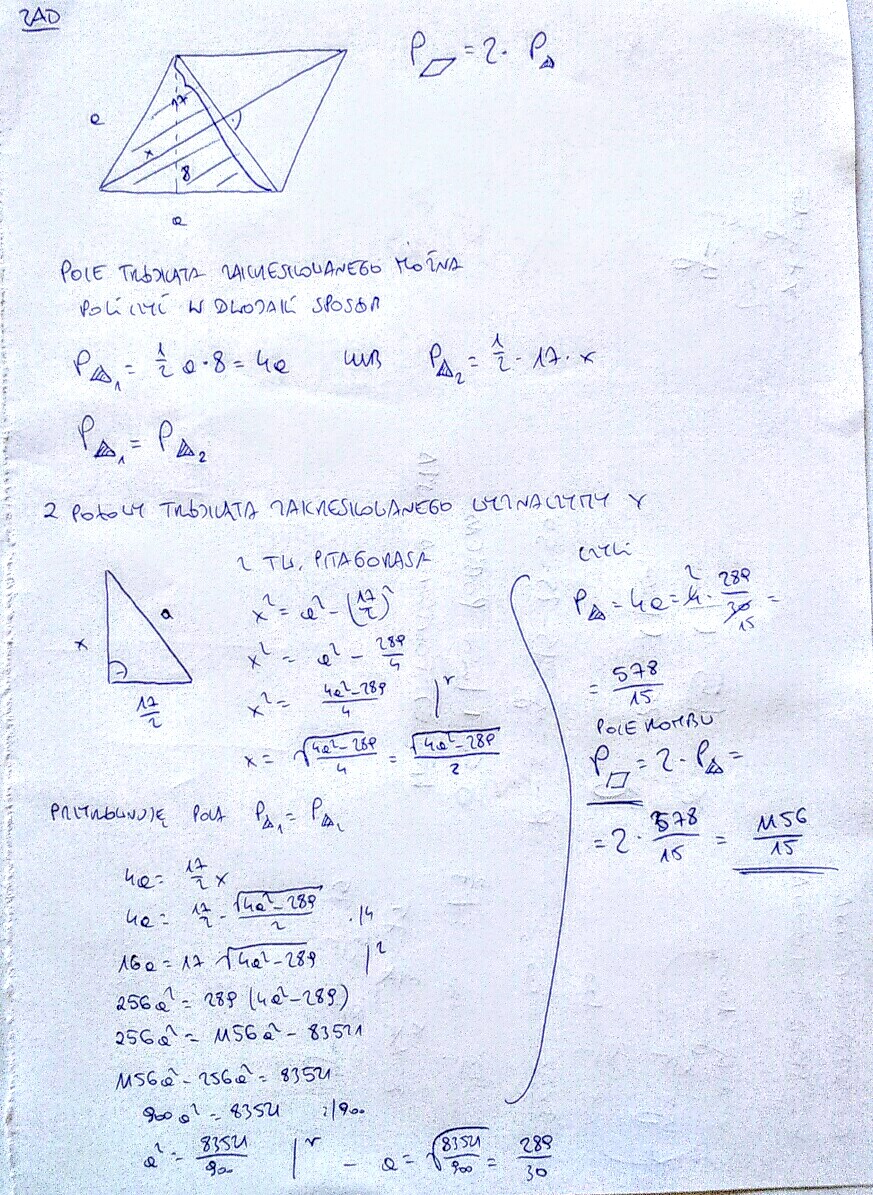 ZAD
P▱ = 2 · P△
a
17
x
8
a
POLE TRÓJKĄTA ZAKRESKOWANEGO MOŻNA
POLICZYĆ W DWOJAKI SPOSÓB
P△₁ = 1/2 a·8 = 4a LUB P△₂ = 1/2 · 17 · x
P△₁ = P△₂
Z POŁOWY TRÓJKĄTA ZAKRESKOWANEGO WYZNACZYMY X
x
a
17/2
Z TW. PITAGORASA
x² = a² - (17/2)²
x² = a² - 289/4
x² = (4a² - 289)/4 |√
x = √((4a² - 289)/4) = √(4a² - 289)/2
PRZYRÓWNUJĘ POLA P△₁ = P△₂
4a = 17/2 x
4a = 17/2 · √(4a² - 289)/2 ·/4
16a = 17 √(4a² - 289) |²
256a² = 289 (4a² - 289)
256a² = 1156a² - 83521
1156a² - 256a² = 83521
900a² = 83521 :/900
a² = 83521/900 |√ - a = √(83521/900) = 289/30
CZYLI
P△ = 4a = 4 · 289/30 =
2
15
= 578/15
POLE ROMBU
P▱ = 2 · P△ =
= 2 · 578/15 = 1156/15